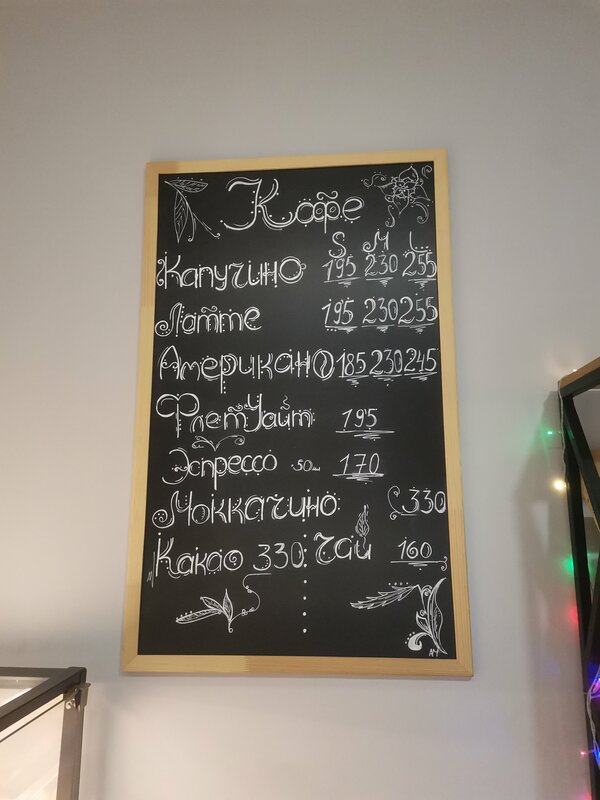 Кофе
S M L
Капучино 195 230 255
Латте 195 230 255
Американо 185 230 245
Флет Уайт 195
Эспрессо 50мл 170
Моккачино 330
Какао 330 Чай 160